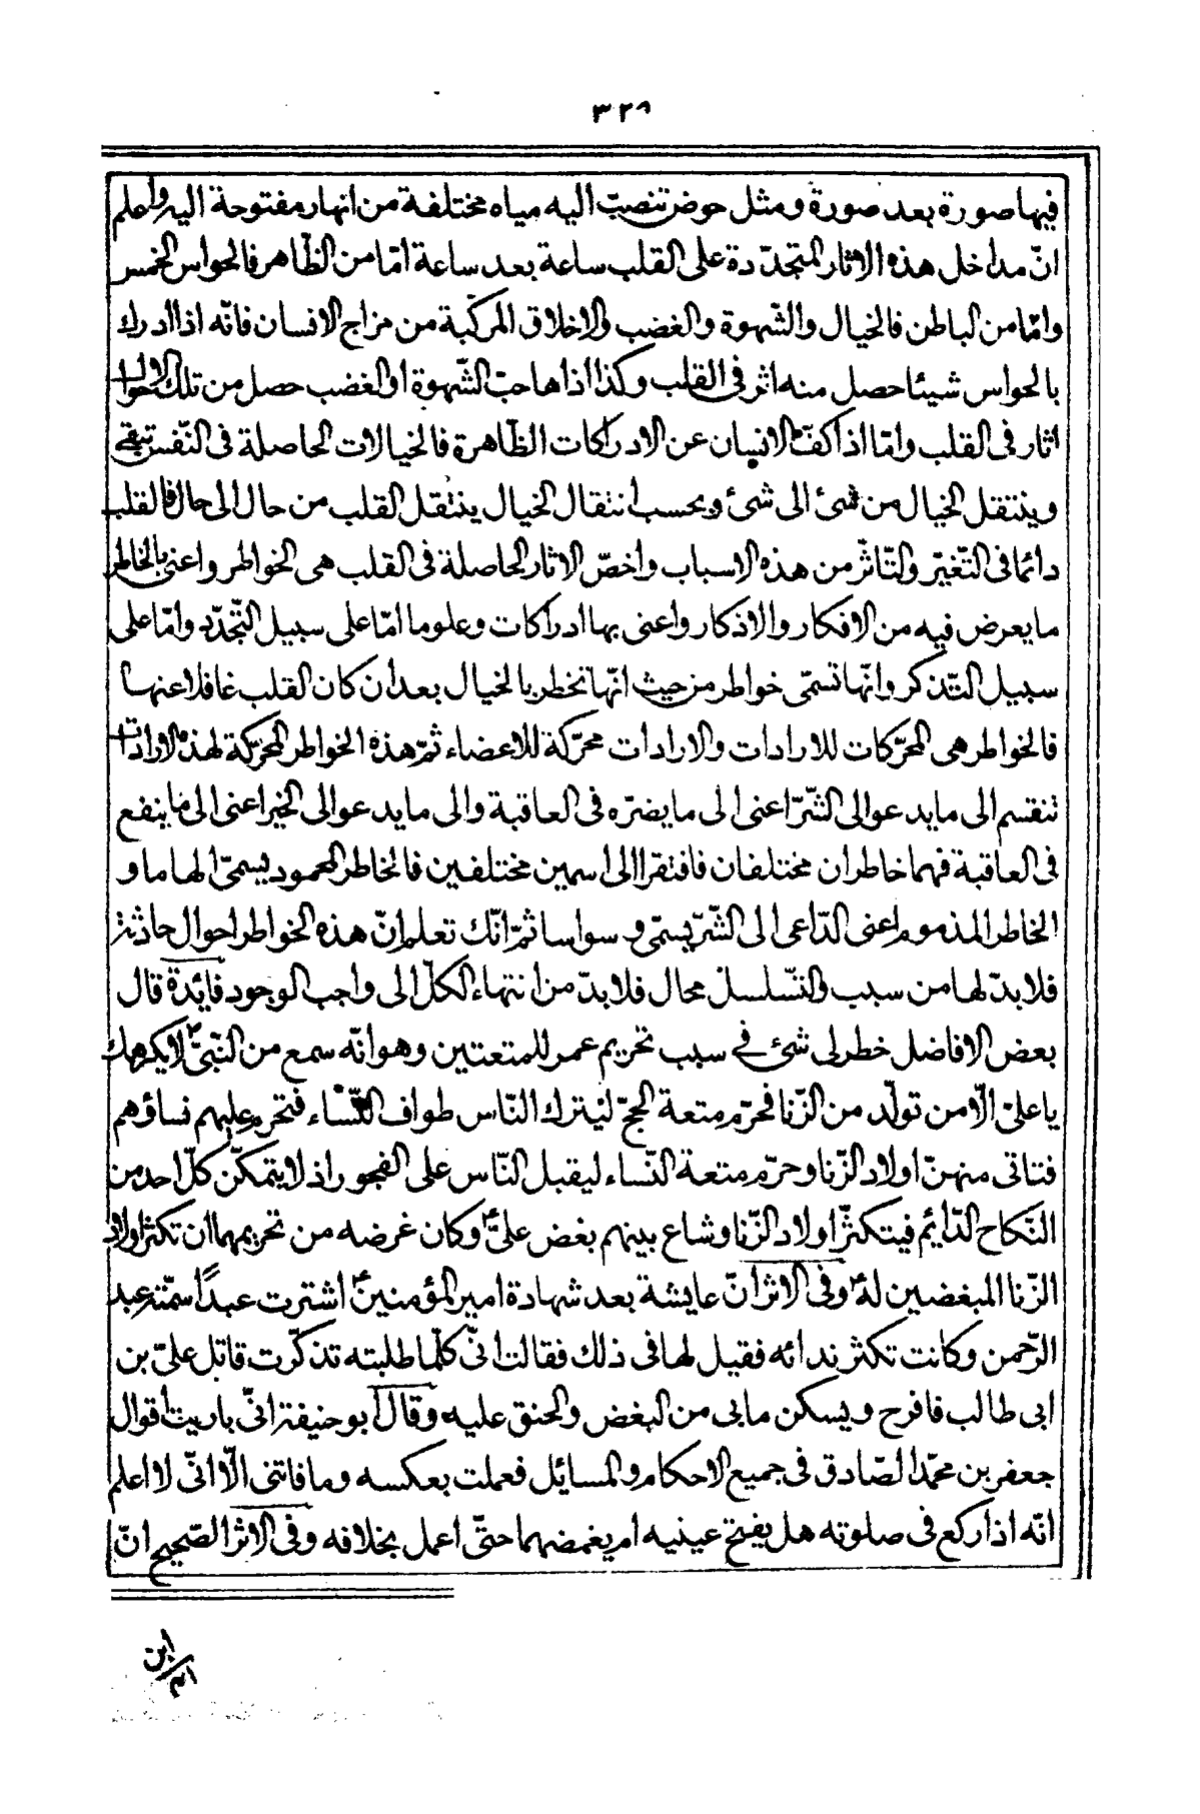 ٣٢٩
فيها صورة بعد صورة ومثل حوض تنصبّ اليه مياه مختلفة من انهار مفتوحة اليه واعلم
انّ مداخل هذه الاثار المتجدّدة على القلب ساعة بعد ساعة امّا من الظّاهر فالحواس الخمس
وامّا من الباطن فالخيال والشّهوة والغضب والاخلاق المركّبة من مزاج الانسان فانّه اذا ادرك
بالحواس شيئا حصل منه اثر فى القلب وكذا اذا هاجت الشّهوة او الغضب حصل من تلك الاحوال
اثار فى القلب وامّا اذا كفّ الانسان عن الادراكات الظّاهرة فالخيالات الحاصلة فى النّفس تبقى
وينتقل الخيال من شئ الى شئ وبحسب انتقال الخيال ينتقل القلب من حال الى حال فالقلب
دائما فى التّغيّر والتّاثّر من هذه الاسباب واخصّ الاثار الحاصلة فى القلب هى الخواطر واعنى بالخاطر
ما يعرض فيه من الافكار والاذكار واعنى بها ادراكات وعلوما امّا على سبيل التّجدّد وامّا على
سبيل التّذكر وانّها تسمّى خواطر من حيث انّها تخطر بالخيال بعد ان كان القلب غافلا عنها
فالخواطر هى المحرّكات للارادات والارادات محرّكة للاعضاء ثمّ هذه الخواطر المحرّكة لهذه الارادات
تنقسم الى ما يدعو الى الشّرّ اعنى الى ما يضرّه فى العاقبة والى ما يدعو الى الخير اعنى الى ما ينفع
فى العاقبة فهما خاطران مختلفان فافتقرا الى اسمين مختلفين فالخاطر المحمود يسمّى الهاما و
الخاطر المذموم اعنى الدّاعى الى الشّرّ يسمّى وسواسا ثمّ انّك تعلم انّ هذه الخواطر احوال حادثة
فلا بدّ لها من سبب والتّسلسل محال فلا بدّ من انتهاء الكلّ الى واجب الوجود فايدة قال
بعض الافاضل خطر لى شئ فى سبب تحريم عمر للمتعتين وهو انّه سمع من النّبىّ ص لا يكرهك
يا علىّ الّا من تولّد من الزّنا فحرّم متعة الحجّ ليترك النّاس طواف النّساء فتحرم عليهم نساؤهم
فتاتى منهنّ اولاد الزّنا وحرّم متعة النّساء ليقبل النّاس على الفجور اذ لا يتمكّن كلّ احد من
النّكاح الدّايم فيتكثّر اولاد الزّنا وشاع بينهم بغض علىّ ع وكان غرضه من تحريمهما ان تكثر اولاد
الزّنا المبغضين له ع وفى الاثر انّ عايشة بعد شهادة امير المؤمنين ع اشترت عبدًا سمّته عبد
الرّحمن وكانت تكثر ندائه فقيل لها فى ذلك فقالت انّى كلّما طلبته تذكّرت قاتل علىّ بن
ابى طالب فافرح ويسكن ما بى من البغض والحنق عليه وقال ابو حنيفة انّى باريت اقوال
جعفر بن محمّد الصّادق فى جميع الاحكام والمسائل فعملت بعكسه وما فاتنى الّا انّى لا اعلم
انّه اذا ركع فى صلوته هل يفتح عينيه ام يغمضهما حتّى اعمل بخلافه وفى الاثر الصّحيح انّ
ابن